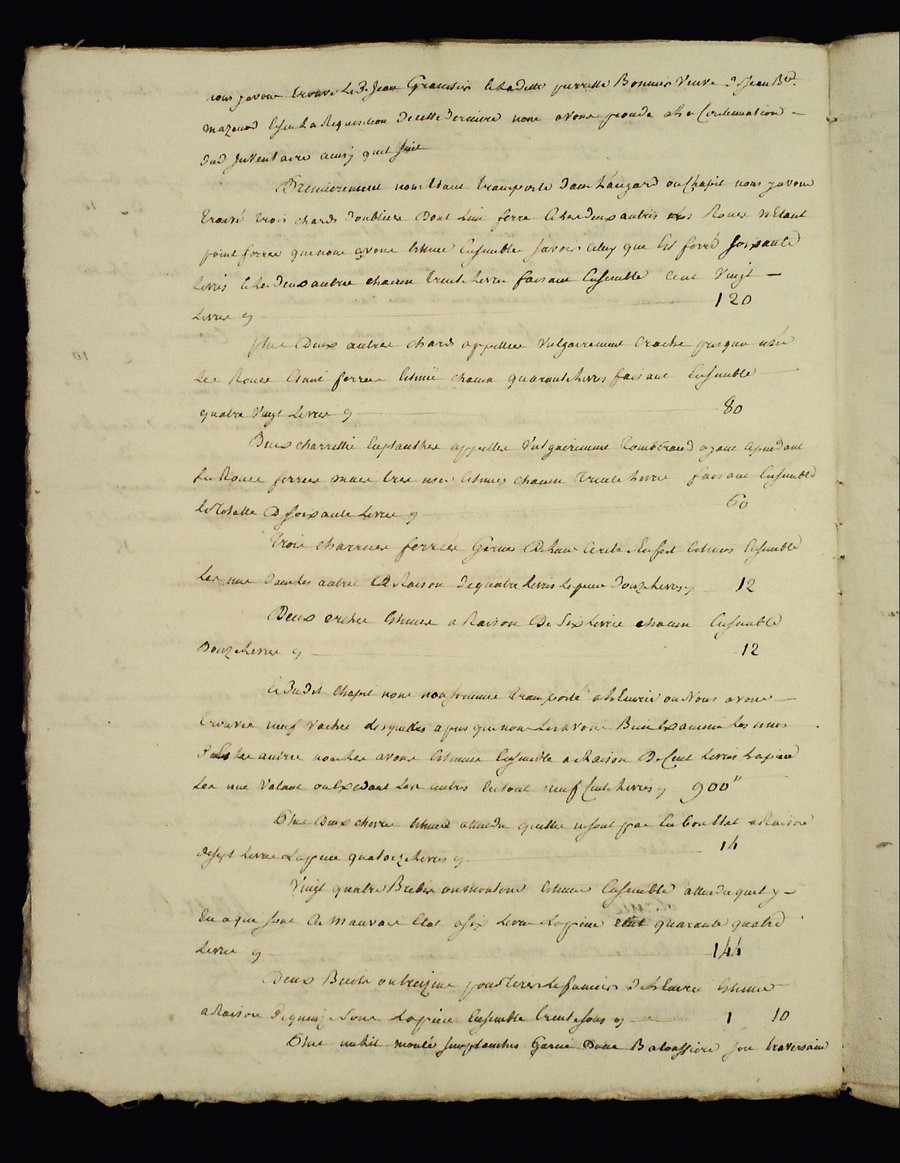 nous y avons trouvé Le d. Jean et Lad. dette pierrette Bonnier Veuve d. Jean Bte.
Mazenod Et sur La Requisition de cette derniere nous avons procedé a La Continuation
dud. Inventaire ainsy quil suit
Premierement nous Etant transporté dans L'angard ou Chapit nous y avons
trouvé trois chards dont L'un ferré Et Les deux autres Les Roues n'Etant
point ferrée que nous avons Estimé Ensemble savoir celuy que Est ferré soixante
Livres Et Les deux autre chacun trente Livre faisant Ensemble cent Vingt
Livres cy 120
plus Deux autres chards appellée Vulgairement presque usée
Les Roues Etant ferrée Estimé chacun quarante Livres faisant Ensemble
quatre Vingt Livres cy 80
Deux appellée Vulgairement tombereaud ayant cependant
Les Roues ferrées mais tres usé Estimés chacun Trente Livre faisant Ensemble
La Totalle De soixante Livre cy 60
Trois charrues ferrée Garnies De Leur Estimés Ensemble
Les une dans Les autre a Raison de quatre Livres La piece douze Livres cy 12
Deux Estimée a Raison De six Livre chacun Ensemble
Douze Livres cy 12
Et Dudit Chapit nous nous sommes transporté a L'Ecurie ou Nous avons
trouvée neuf Vaches Lesquelles apres que nous Les avons Bien Examiné Les unes
Et Les autres nous Les avons Estimée Ensemble a Raison De Cent Livres La piece
Les une Valant ou Excedant Les autres En tout neuf Cent Livres cy 900"
Plus Deux chevre Estimée attendu quelle ne sont pas En bon Etat a Raison
de sept Livre La piece quatorze Livres cy 14
Vingt quatre Brebis ou moutons Estimés Ensemble attendu quil y
En a que sont En Mauvais Etat a six Livre La piece cent quarante quatre
Livres cy 144
Deux ou pour tirer Le fumier de L'Ecurie Estimée
a Raison de quinze Sous La piece Ensemble trente sous cy 1 10
Plus un Lit monté sur planches Garni Dune Balouffiere son traversain